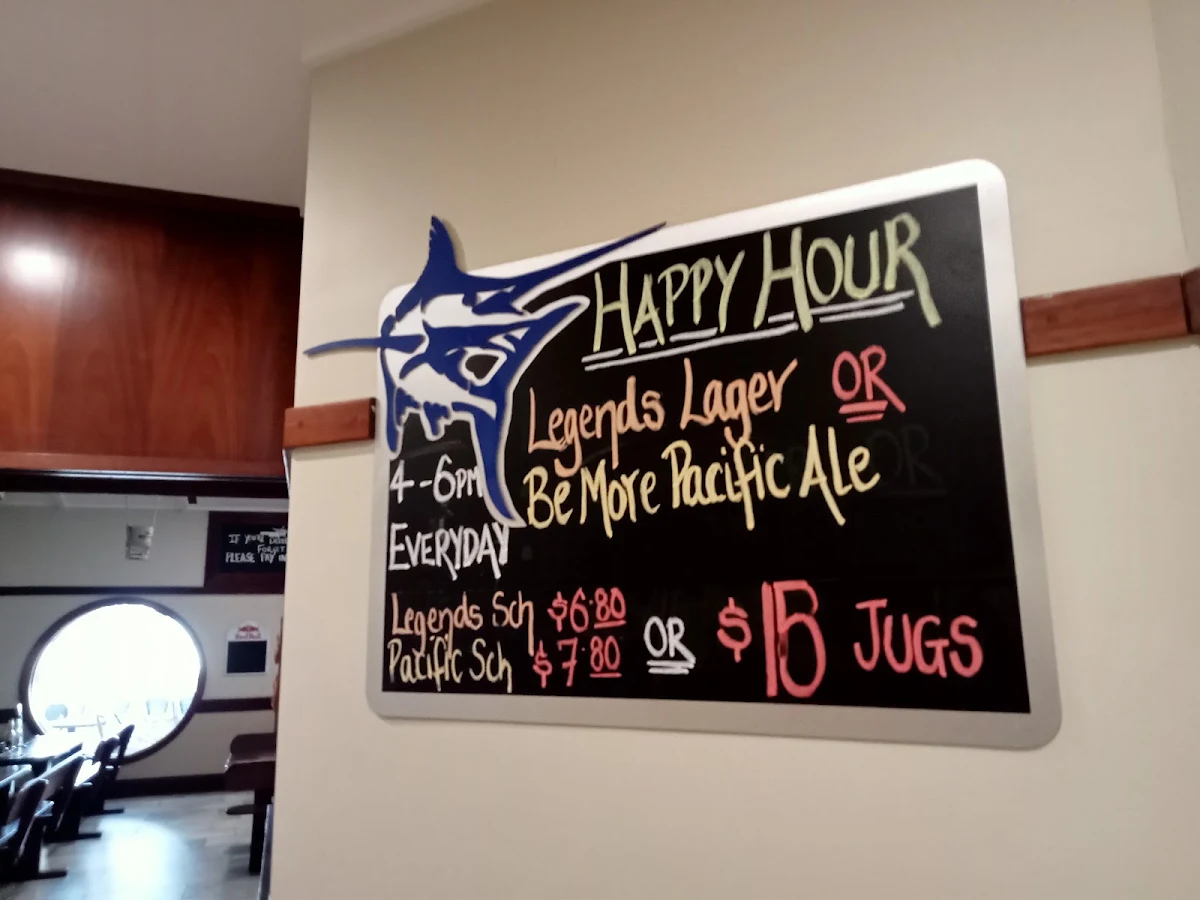 HAPPY HOUR
Legends Lager OR
Be More Pacific Ale
4-6PM
EVERYDAY
Legends Sch $6.80
Pacific Sch $7.80
OR
$15 JUGS
IF YOU'RE
FORGET
PLEASE PAY IN
Red Bull